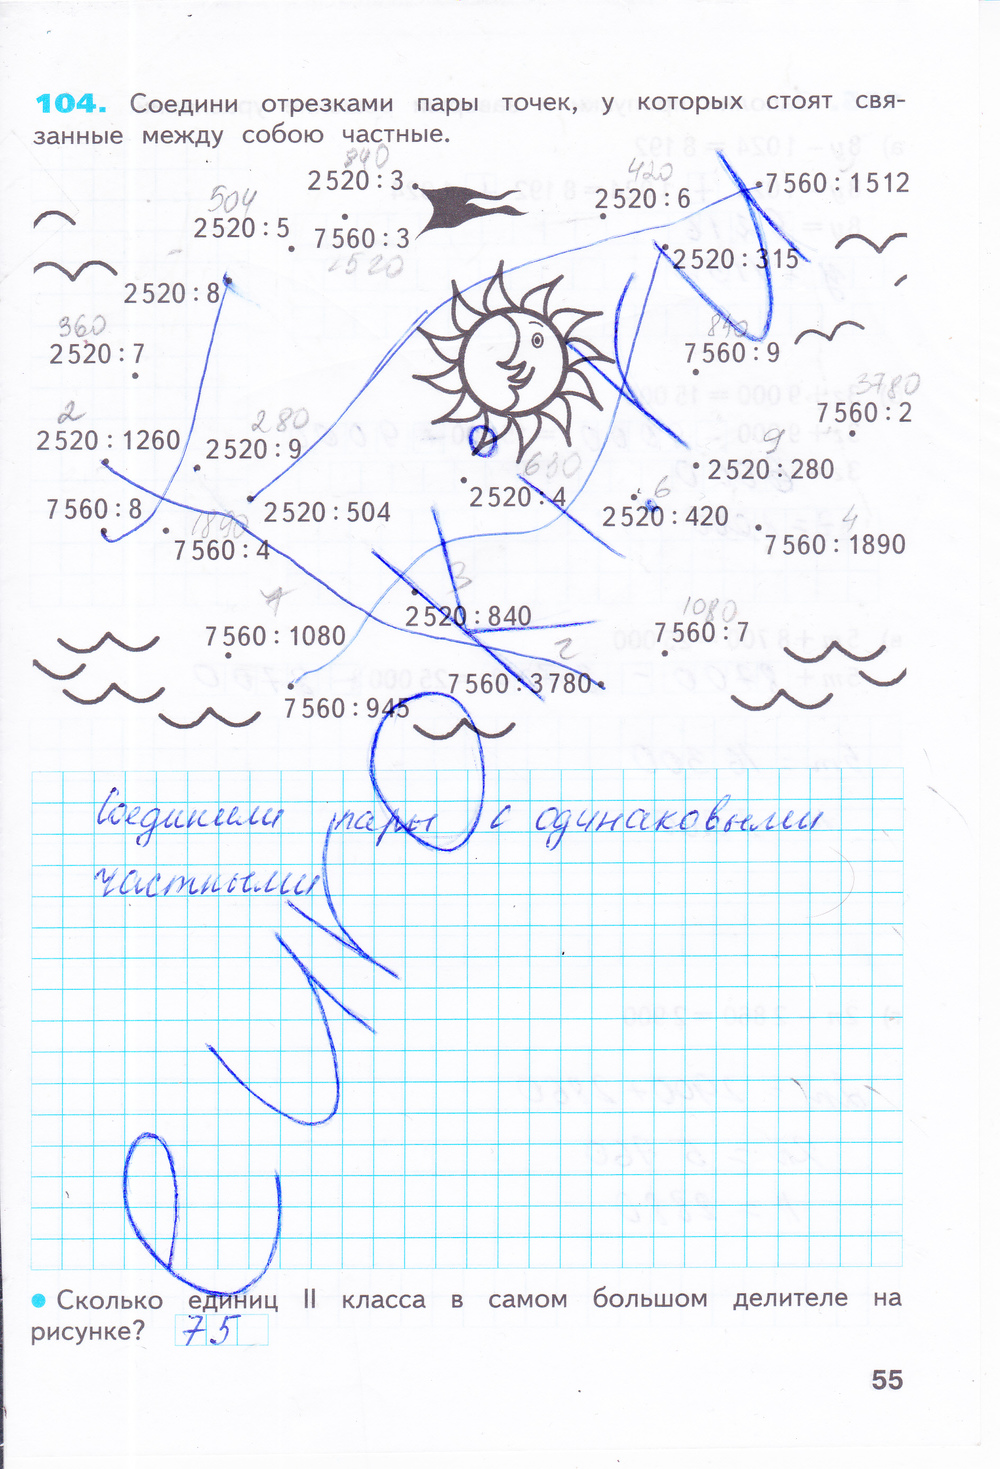 104. Соедини отрезками пары точек, у которых стоят свя-
занные между собою частные.
840
2520 : 3
420
2520 : 6
7560 : 1512
504
2520 : 5
7560 : 3
1520
2520 : 315
2520 : 8
360
2520 : 7
840
7560 : 9
3780
7560 : 2
2
2520 : 1260
280
2520 : 9
9
2520 : 280
630
2520 : 4
7560 : 8
2520 : 504
6
2520 : 420
1890
7560 : 4
4
7560 : 1890
3
2520 : 840
7
7560 : 1080
1080
7560 : 7
2
7560 : 3780
7560 : 945
Соединили пары с одинаковыми
частными
Сколько единиц II класса в самом большом делителе на
рисунке? 75
55